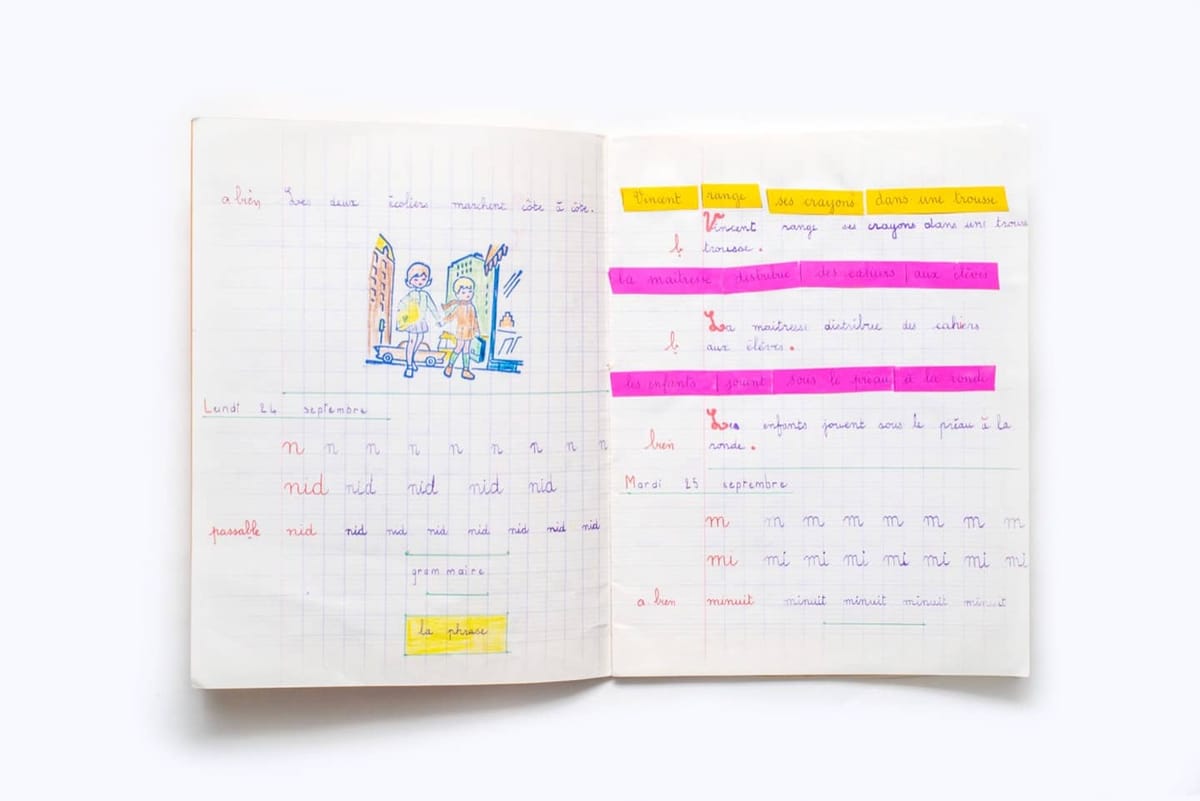 a bien Les deux écoliers marchent côte à côte.
Lundi 24 septembre
n n n n n n n n n
nid nid nid nid nid
passable nid nid nid nid nid nid nid nid
grammaire
la phrase
Vincent range ses crayons dans une trousse
Vincent range ses crayons dans une trousse
b trousse.
la maîtresse distribue des cahiers aux élèves
La maîtresse distribue des cahiers
b aux élèves.
les enfants jouent sous le préau à la ronde
Les enfants jouent sous le préau à la
bien ronde.
Mardi 25 septembre
m m m m m m m m
mi mi mi mi mi mi mi mi
a bien minuit minuit minuit minuit minuit